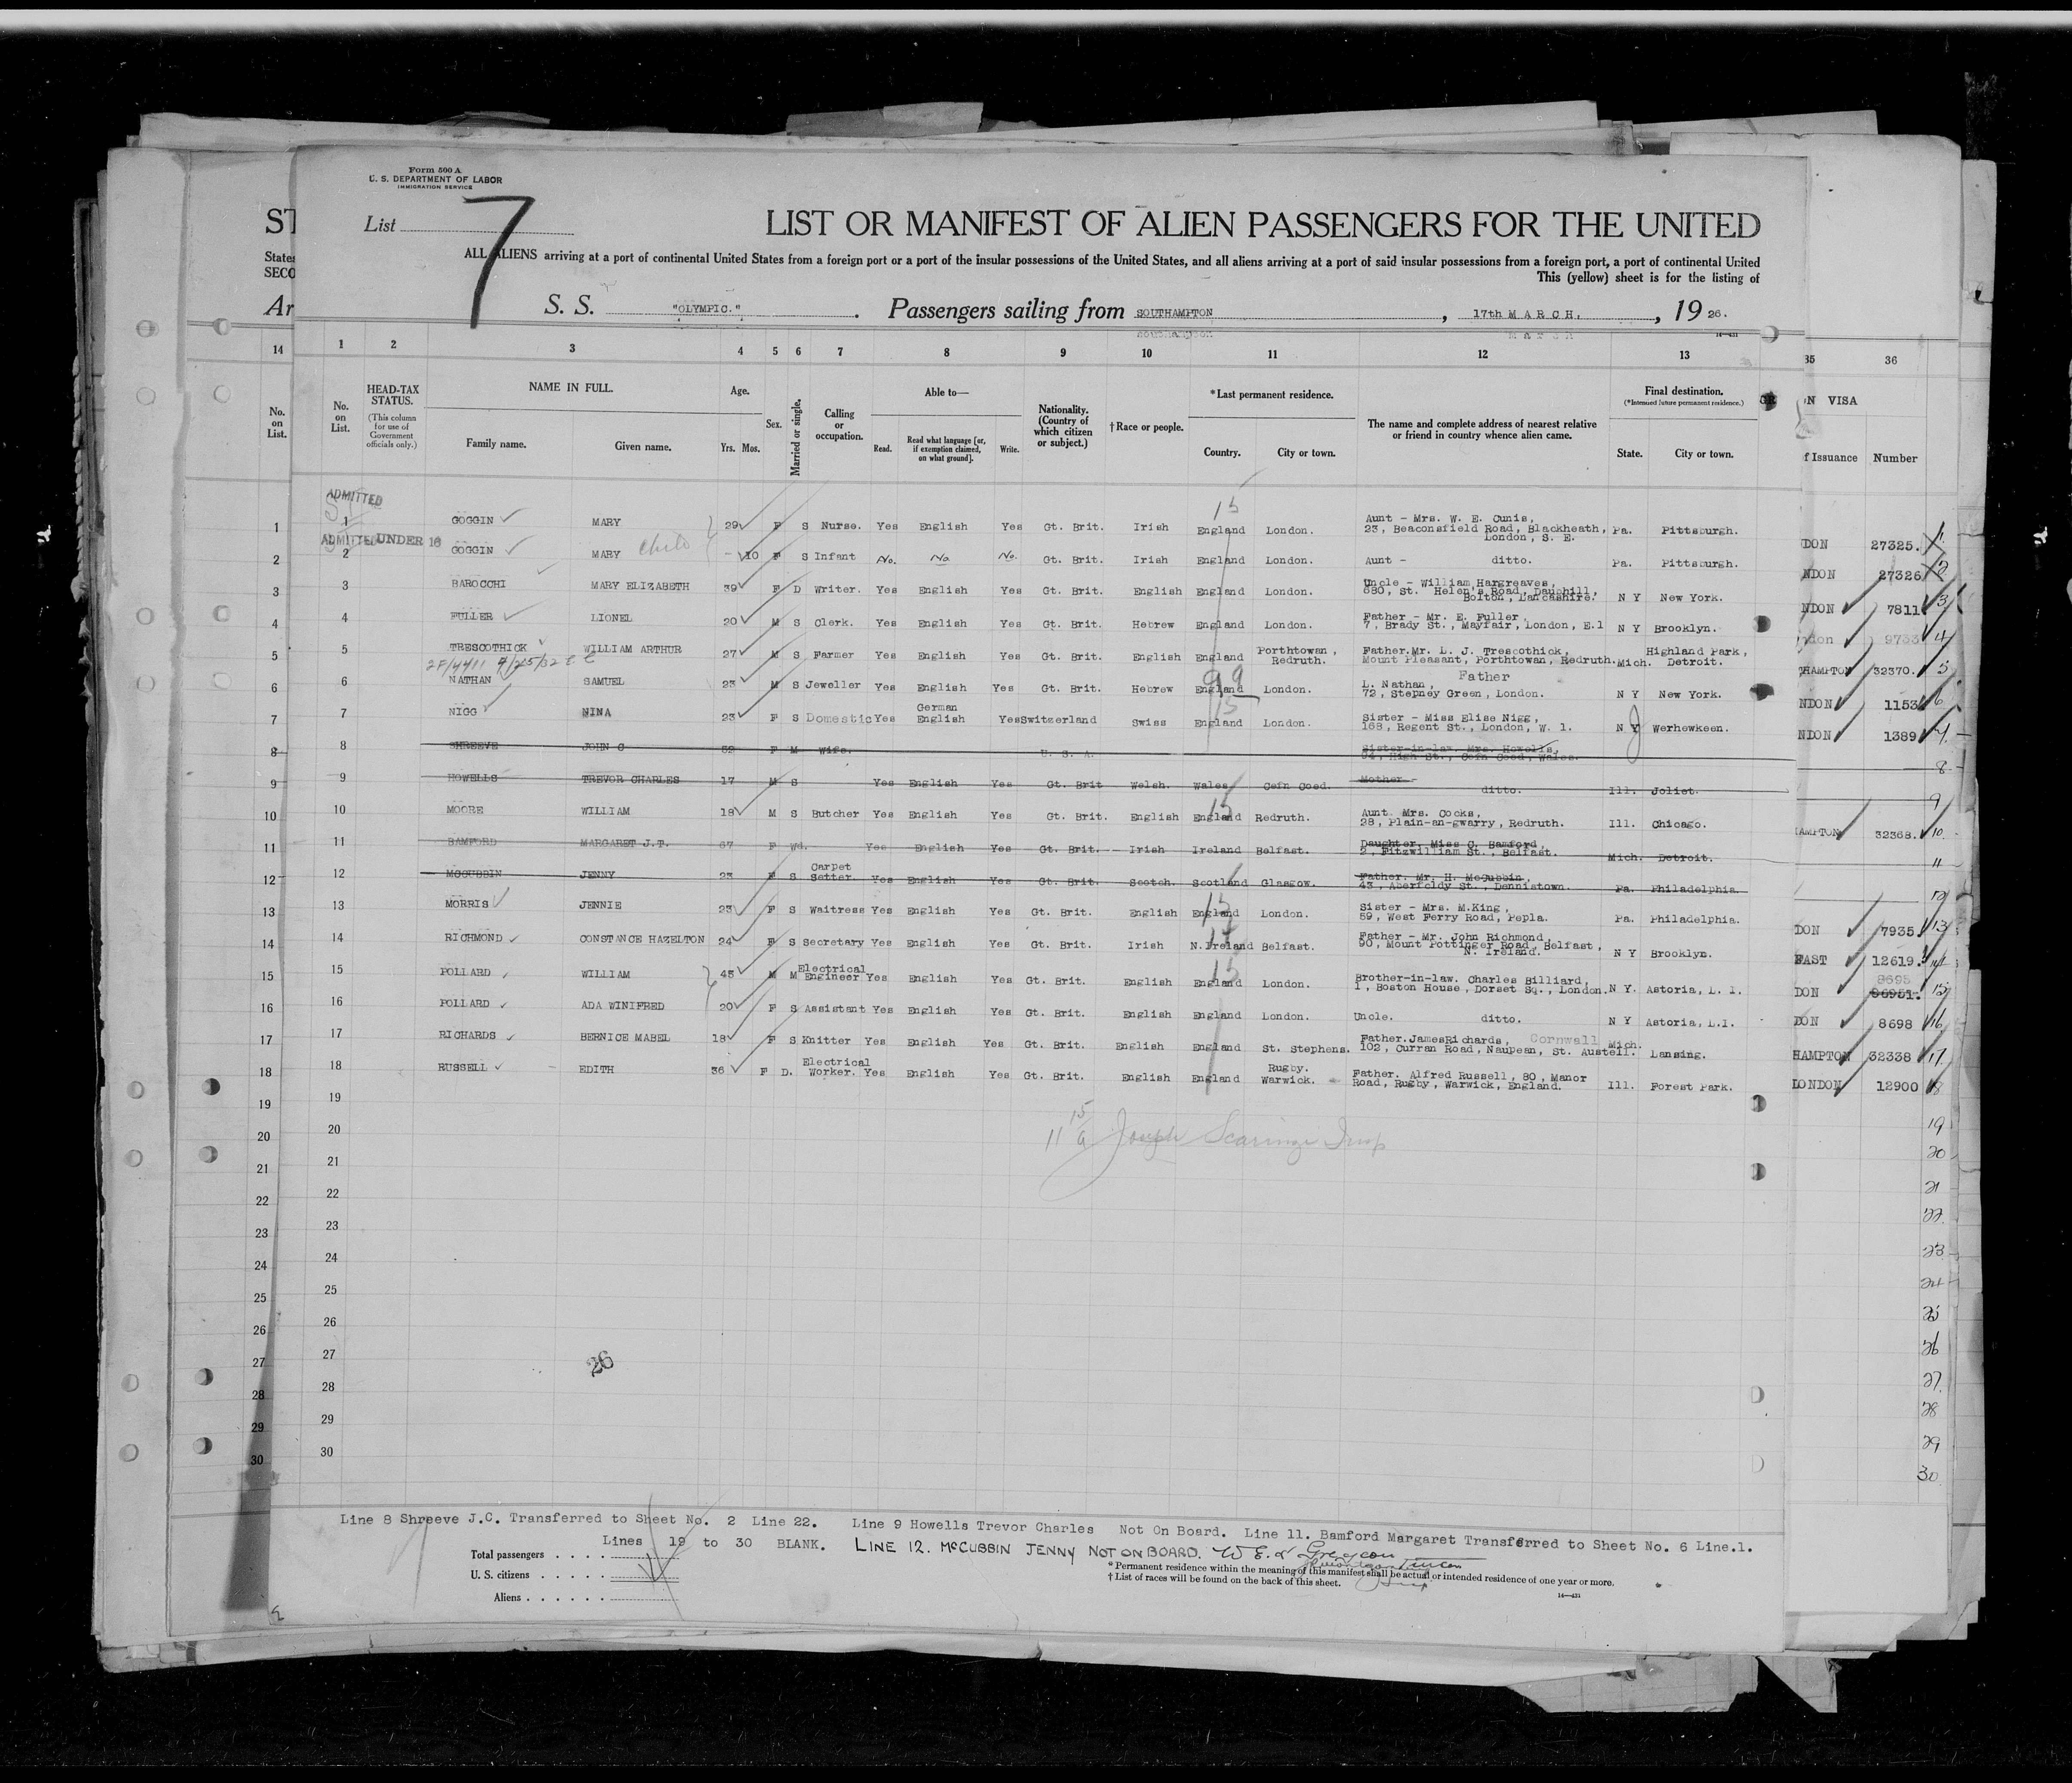 Form 500 A
U. S. DEPARTMENT OF LABOR
IMMIGRATION SERVICE
List 7
LIST OR MANIFEST OF ALIEN PASSENGERS FOR THE UNITED
ALL ALIENS arriving at a port of continental United States from a foreign port or a port of the insular possessions of the United States, and all aliens arriving at a port of said insular possessions from a foreign port, a port of continental United
This (yellow) sheet is for the listing of
S. S. "OLYMPIC." Passengers sailing from SOUTHAMPTON, 17th MARCH, 1926.
ST
States
SECO
Ar
14 1 2 3 4 5 6 7 8 9 10 11 12 13 35 36
No. on List.
No. on List.
HEAD-TAX STATUS.
(This column for use of Government officials only.)
NAME IN FULL.
Family name. Given name.
Age.
Yrs. Mos.
Sex.
Married or single.
Calling or occupation.
Able to—
Read. Read what language [or, if exemption claimed, on what ground]. Write.
Nationality. (Country of which citizen or subject.)
†Race or people.
*Last permanent residence.
Country. City or town.
The name and complete address of nearest relative or friend in country whence alien came.
Final destination.
(*Intended future permanent residence.)
State. City or town.
N VISA
f Issuance Number
ADMITTED
1 1 GOGGIN MARY 29 F S Nurse. Yes English Yes Gt. Brit. Irish England London. Aunt - Mrs. W. E. Cunis, 23, Beaconsfield Road, Blackheath, London, S. E. Pa. Pittsburgh. DON 27325. 1
ADMITTED UNDER 16
2 2 GOGGIN MARY Child - 10 F S Infant No. No No. Gt. Brit. Irish England London. Aunt - ditto. Pa. Pittsburgh. NDON 27326 2
3 3 BAROCCHI MARY ELIZABETH 39 F D Writer. Yes English Yes Gt. Brit. English England London. Uncle - William Hargreaves, 680, St. Helen's Road, Daubhill, Bolton, Lancashire. N Y New York. NDON 7811 3
4 4 FULLER LIONEL 20 M S Clerk. Yes English Yes Gt. Brit. Hebrew England London. Father - Mr. E. Fuller, 7, Brady St., Mayfair, London, E.1 N Y Brooklyn. ndon 9733 4
5 5 TRESCOTHICK WILLIAM ARTHUR 27 M S Farmer Yes English Yes Gt. Brit. English England Porthtowan, Redruth. Father.Mr. L. J. Trescothick, Mount Pleasant, Porthtowan, Redruth. Mich. Highland Park, Detroit. THAMPTON 32370. 5
6 6 NATHAN SAMUEL 23 M S Jeweller Yes English Yes Gt. Brit. Hebrew England London. Father L. Nathan, 72, Stepney Green, London. N Y New York. NDON 1153 6
7 7 NIGG NINA 23 F S Domestic Yes German English Yes Switzerland Swiss England London. Sister - Miss Elise Nigg, 168, Regent St., London, W. 1. N Y Werhewkeen. NDON 1389 7.
8 8 SHREEVE JOHN C 52 F M Wife. U. S. A. Sister-in-law. Mrs. Howells, 54, High St., Cefn Coed, Wales. 8
9 9 HOWELLS TREVOR CHARLES 17 M S Yes English Yes Gt. Brit Welsh. Wales Cefn Coed. Mother - ditto. Ill. Joliet. 9
10 10 MOORE WILLIAM 18 M S Butcher Yes English Yes Gt. Brit. English England Redruth. Aunt. Mrs. Cocks, 28, Plain-an-gwarry, Redruth. Ill. Chicago. HAMPTON 32368. 10
11 11 BAMFORD MARGARET J.T. 67 F Wd. Yes English Yes Gt. Brit. Irish Ireland Belfast. Daughter. Miss C. Bamford, 2, Fitzwilliam St., Belfast. Mich. Detroit. 11
12 12 MCCUBBIN JENNY 23 F S Carpet Setter. Yes English Yes Gt. Brit. Scotch. Scotland Glasgow. Father. Mr. H. McCubbin, 43, Aberfoldy St., Dennistown. Pa. Philadelphia. 12
13 13 MORRIS JENNIE 23 F S Waitress Yes English Yes Gt. Brit. English England London. Sister - Mrs. M.King, 59, West Ferry Road, Pepla. Pa. Philadelphia. DON 7935. 13
14 14 RICHMOND CONSTANCE HAZELTON 24 F S Secretary Yes English Yes Gt. Brit. Irish N.Ireland Belfast. Father - Mr. John Richmond, 90, Mount Pottinger Road, Belfast, N. Ireland. N Y Brooklyn. FAST 12619. 14
15 15 POLLARD WILLIAM 45 M M Electrical Engineer Yes English Yes Gt. Brit. English England London. Brother-in-law. Charles Billiard, 1, Boston House, Dorset Sq., London. N Y. Astoria, L. I. DON 8695 86951. 15
16 16 POLLARD ADA WINIFRED 20 F S Assistant Yes English Yes Gt. Brit. English England London. Uncle. ditto. N Y Astoria, L.I. DON 8698 16
17 17 RICHARDS BERNICE MABEL 18 F S Knitter Yes English Yes Gt. Brit. English England St. Stephens. Father.JamesRichards, Cornwall 102, Curran Road, Naupean, St. Austell. Mich. Lansing. HAMPTON 32338 17.
18 18 RUSSELL EDITH 36 F D. Electrical Worker. Yes English Yes Gt. Brit. English England Rugby. Warwick. Father. Alfred Russell, 80, Manor Road, Rugby, Warwick, England. Ill. Forest Park. LONDON 12900 18
19 19 19
20 20 20
21 21 21
22 22 22
23 23 23
24 24 24
25 25 25
26 26 26
27 27 26 27
28 28 28
29 29 29
30 30 30
Line 8 Shreeve J.C. Transferred to Sheet No. 2 Line 22. Line 9 Howells Trevor Charles Not On Board. Line 11. Bamford Margaret Transferred to Sheet No. 6 Line.1.
Lines 19 to 30 BLANK. LINE 12. McCUBBIN JENNY NOT ON BOARD.
Total passengers . . . .
U. S. citizens . . . . .
Aliens . . . . . .
* Permanent residence within the meaning of this manifest shall be actual or intended residence of one year or more.
† List of races will be found on the back of this sheet.
14—431